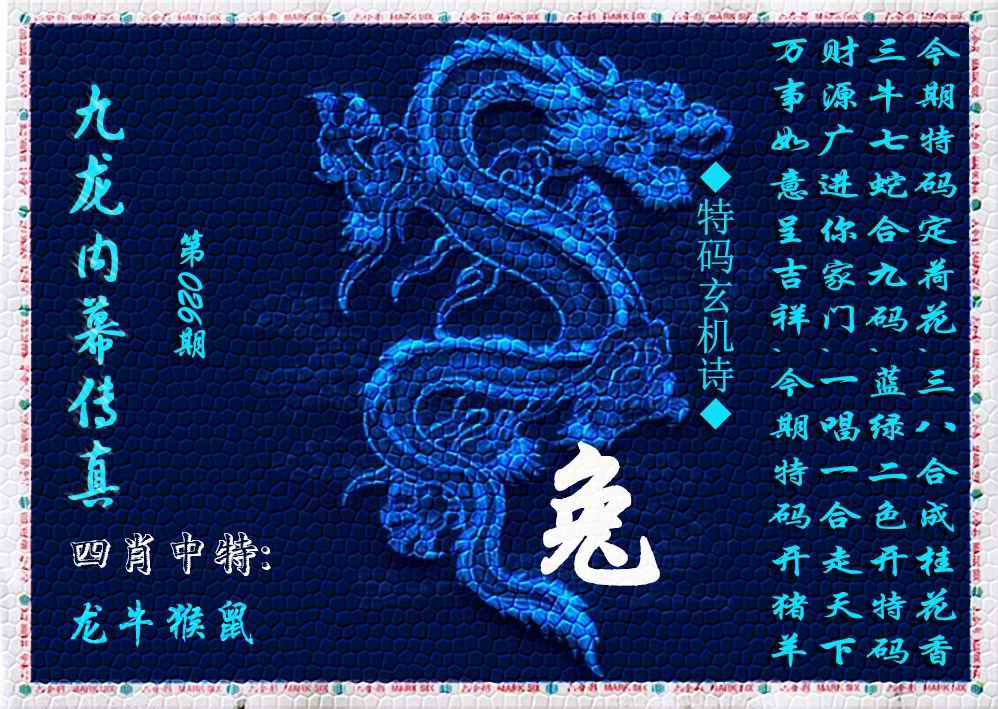 今期特码定荷花、三八合成桂花香
三牛七蛇合九码、蓝绿二色开特码
财源广进你家门、一唱一合走天下
万事如意呈吉祥、今期特码开猪羊
◆特码玄机诗◆
兔
第026期
九龙内幕传真
四肖中特:
龙牛猴鼠